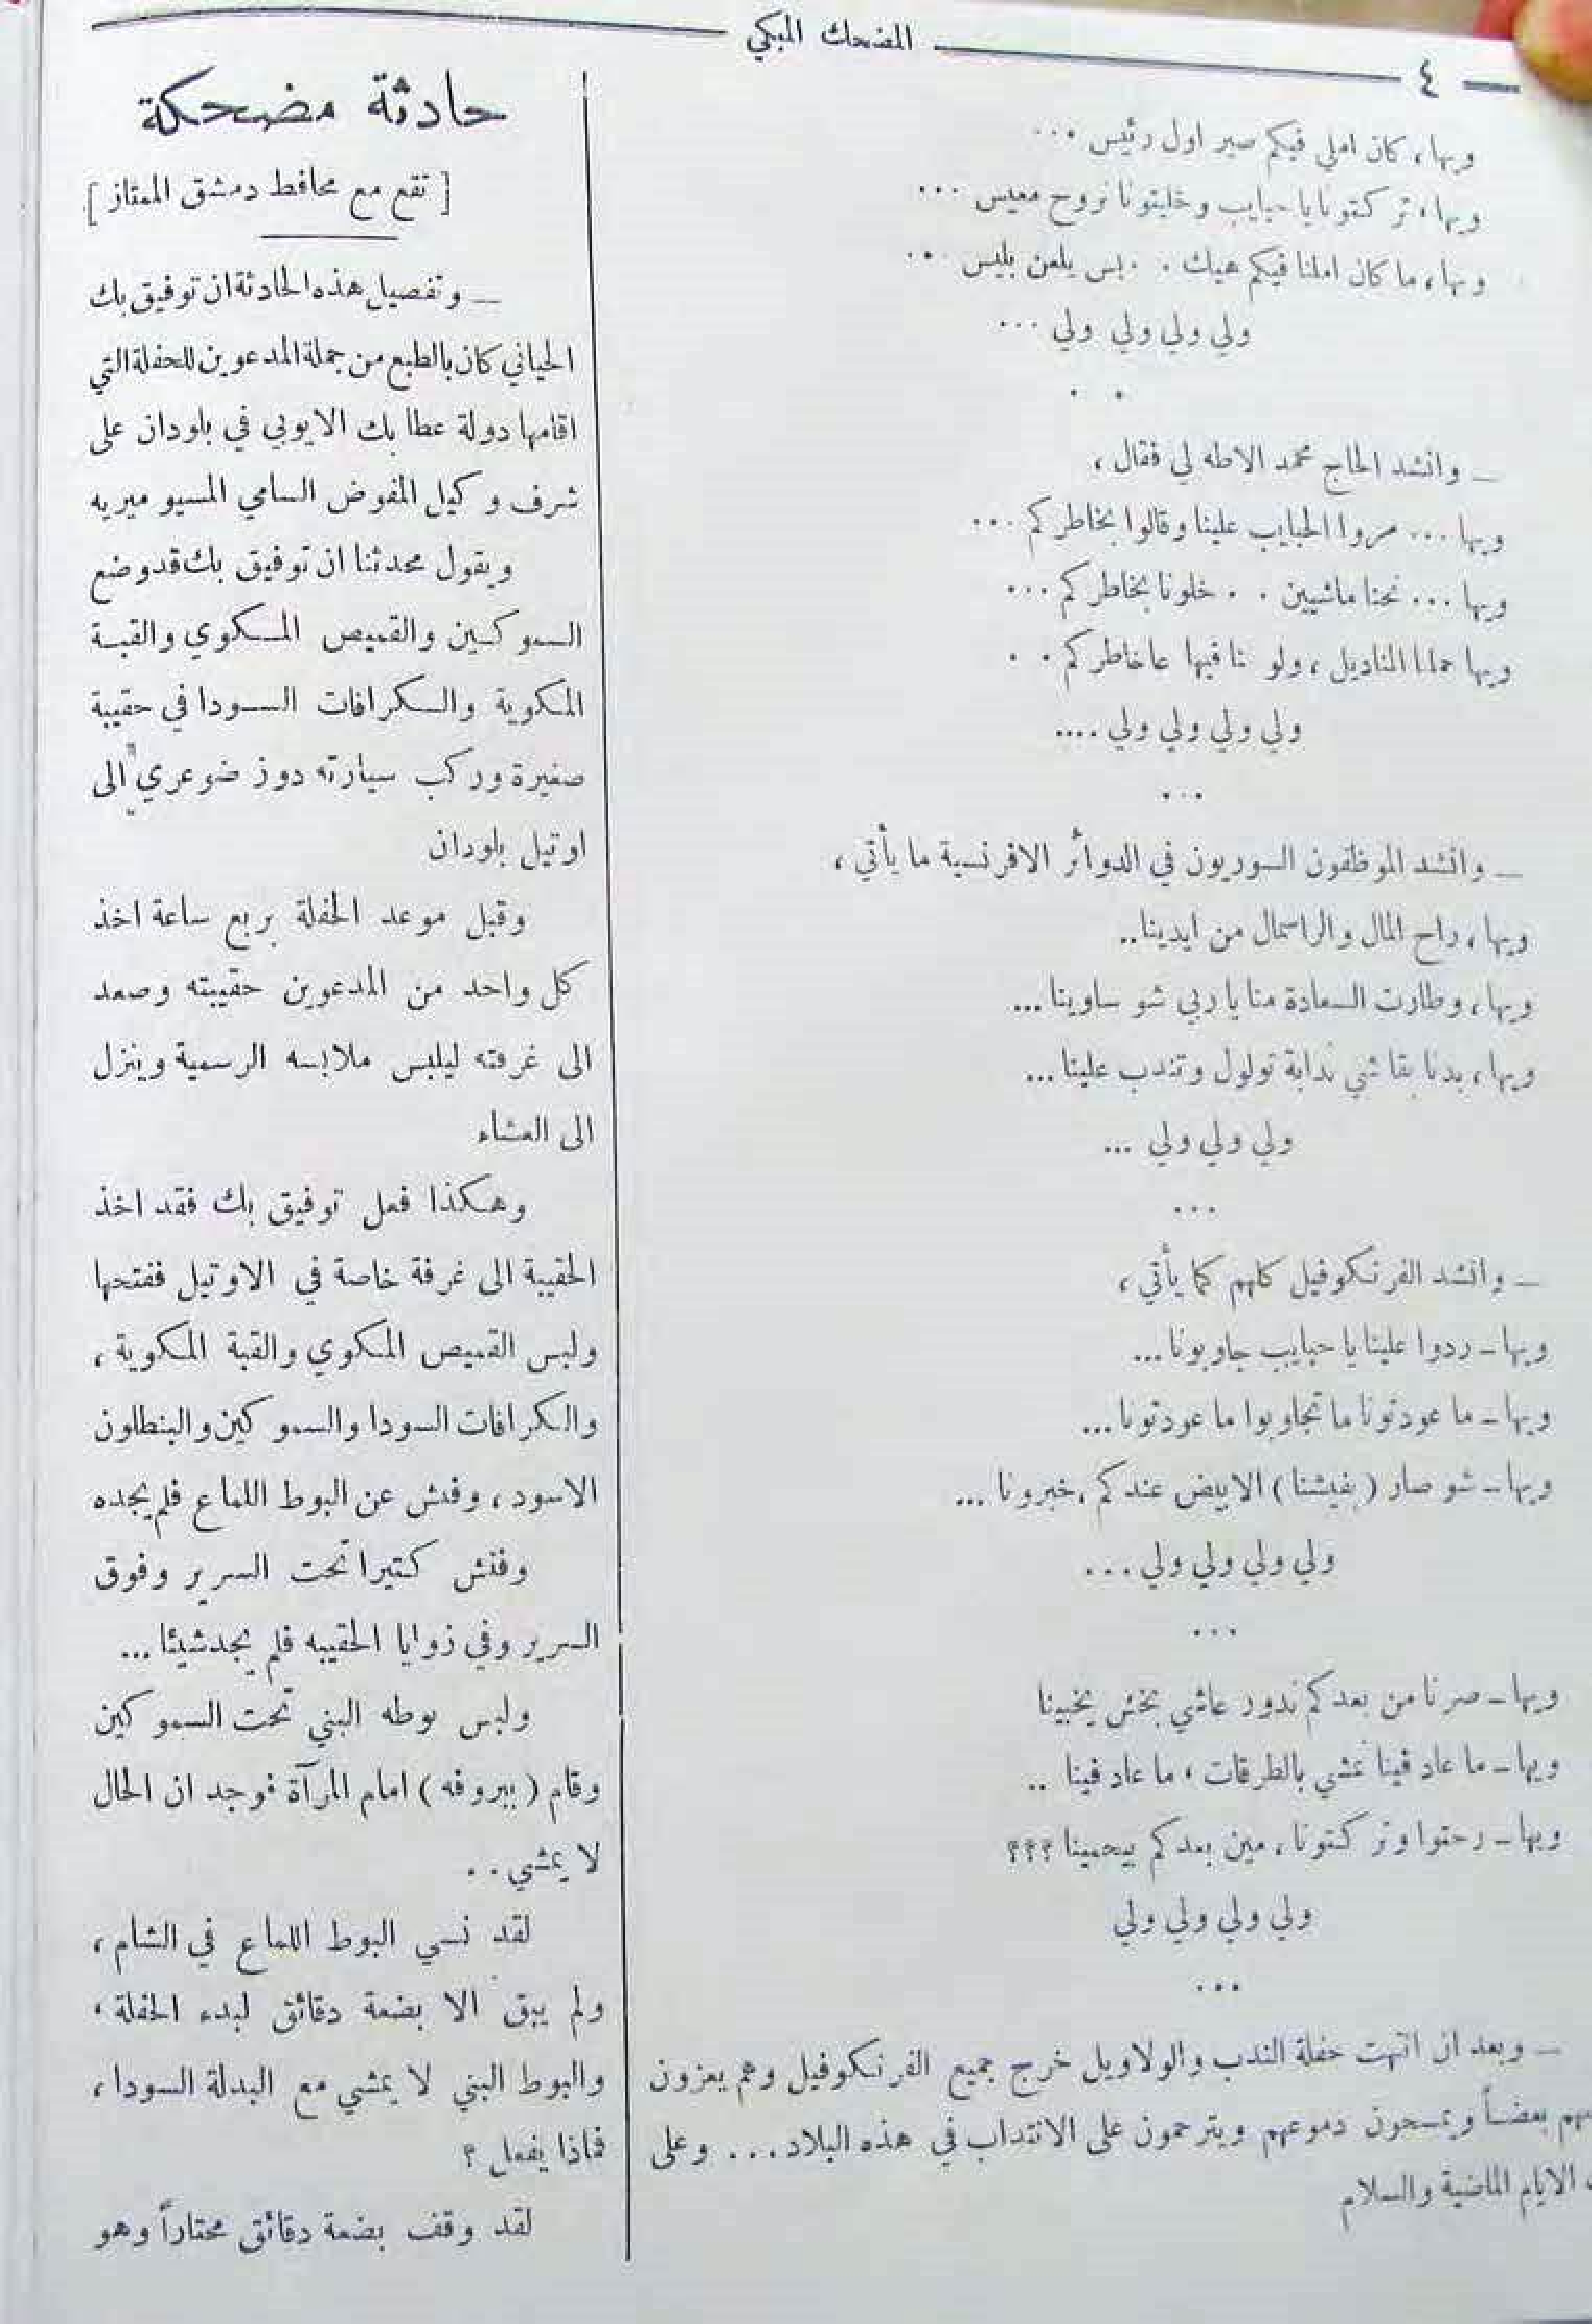 ٤
المضحك المبكي
ويها، كان املي فيكم صير اول رئيس ...
ويها، تركتونا يا حبايب وخليتونا نروح معيس ...
ويها، ما كان املنا فيكم هيك . . بس يلعن بليس ...
ولي ولي ولي ولي ...
. .
ــ وانشد الحاج محمد الاطه لي فقال،
ويها ... مروا الحبايب علينا وقالوا بخاطركم ...
ويها ... نحنا ماشيين . . خلونا بخاطركم ...
ويها حملنا المناديل، ولو نا فيها عاخاطركم . .
ولي ولي ولي ولي ....
...
ــ وانشد الموظفون السوريون في الدوائر الافرنسية ما يأتي،
ويها، راح المال والراسمال من ايدينا..
ويها، وطارت السعادة منا يا ربي شو ساوينا...
ويها، بدنا بقا شي ندابة تولول وتندب علينا...
ولي ولي ولي ...
...
ــ وانشد الفرنكوفيل كلهم كما يأتي،
ويها ـ ردوا علينا يا حبايب جاوبونا...
ويها ـ ما عودتونا ما تجاوبوا ما عودتونا...
ويها ـ شو صار ( بفيشنا ) الابيض عندكم، خبرونا ...
ولي ولي ولي ولي ...
...
ويها ـ صرنا من بعدكم ندور عاشي بخش يخبينا
ويها ـ ما عاد فينا نمشي بالطرقات، ما عاد فينا ..
ويها ـ رحتوا وتركتونا، مين بعدكم بيحمينا ؟؟؟
ولي ولي ولي ولي
...
ــ وبعد ان انتهت حفلة الندب والولاويل خرج جميع الفرنكوفيل وهم يعزون
بعضاً ويمسحون دموعهم ويترحمون على الانتداب في هذه البلاد ... وعلى
الايام الماضية والسلام
حادثة مضحكة
[ تقع مع محافظ دمشق الممتاز ]
ــ وتفصيل هذه الحادثة ان توفيق بك
الحياني كان بالطبع من جملة المدعوين للحفلة التي
اقامها دولة عطا بك الايوبي في بلودان على
شرف وكيل المفوض السامي المسيو ميريه
ويقول محدثنا ان توفيق بك قد وضع
السموكين والقميص المكوي والقبة
المكوية والسكرافات السودا في حقيبة
صغيرة وركب سيارته دوز ضوغري الى
اوتيل بلودان
وقبل موعد الحفلة بربع ساعة اخذ
كل واحد من المدعوين حقيبته وصعد
الى غرفته ليلبس ملابسه الرسمية وينزل
الى العشاء
وهكذا فعل توفيق بك فقد اخذ
الحقيبة الى غرفة خاصة في الاوتيل ففتحها
ولبس القميص المكوي والقبة المكوية،
والكرافات السودا والسمو كين والبنطلون
الاسود، وفتش عن البوط اللماع فلم يجده
وفتش كتيرا تحت السرير وفوق
السرير وفي زوايا الحقيبه فلم يجد شيئا...
ولبس بوطه البني تحت السمو كين
وقام ( ببروفه ) امام المرآة فوجد ان الحال
لا يمشي ..
لقد نسي البوط اللماع في الشام،
ولم يبق الا بضعة دقائق لبدء الحفلة،
والبوط البني لا يمشي مع البدلة السودا،
فماذا يفعل ؟
لقد وقف بضعة دقائق محتاراً وهو